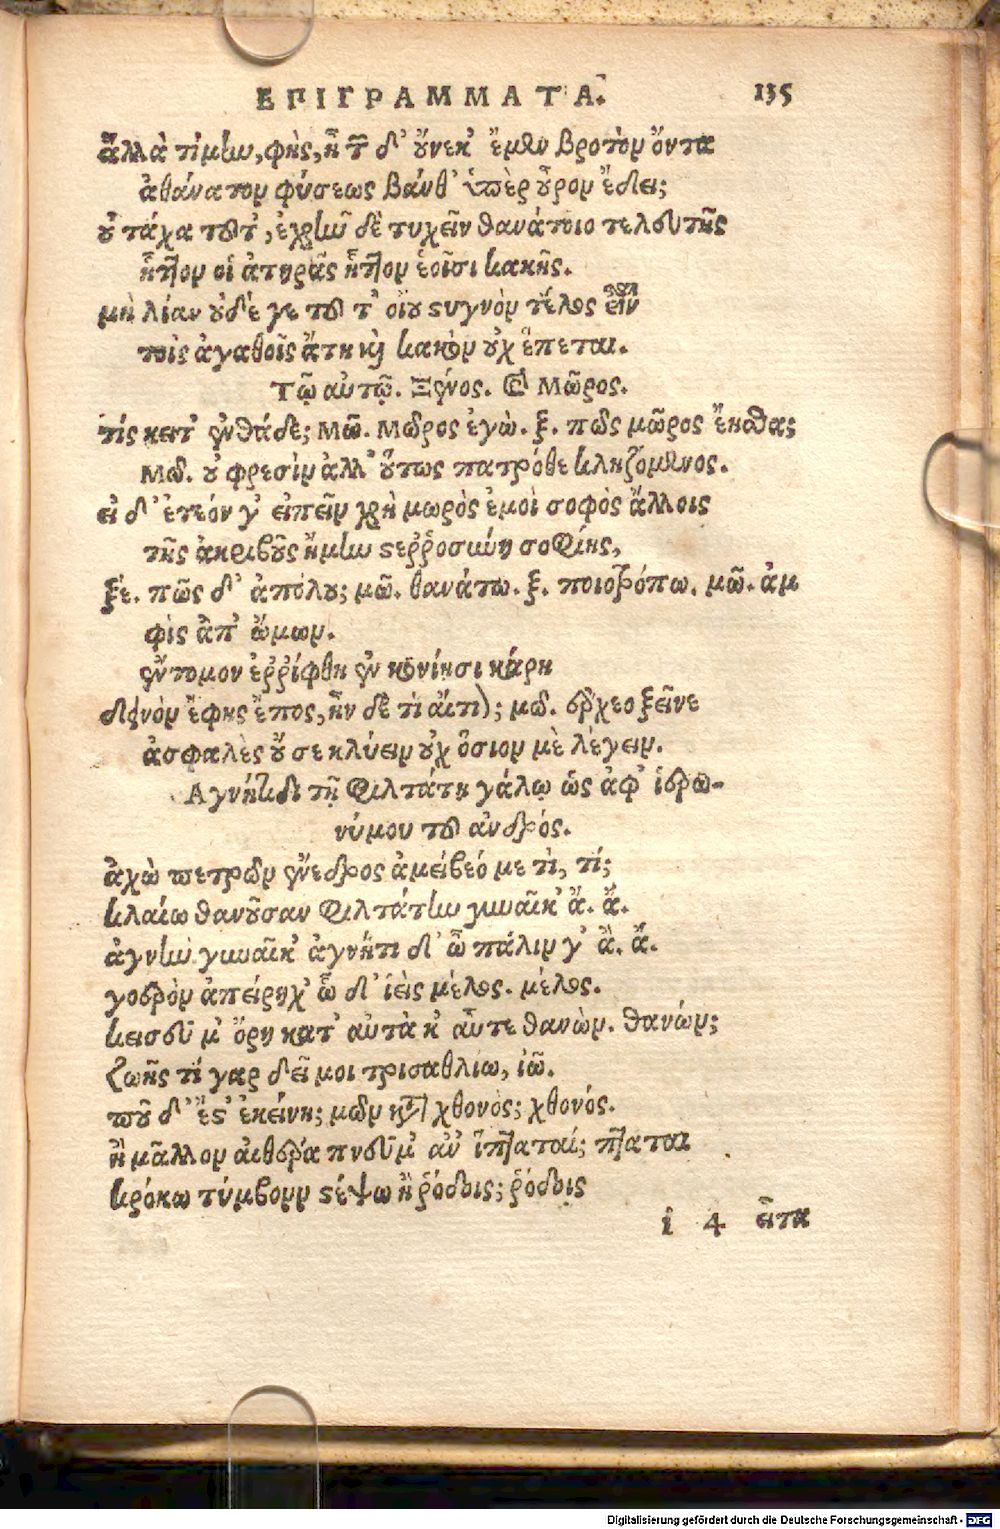 ΕΠΙΓΡΑΜΜΑΤΑ. 135
ἀλλὰ τίμlω, φὴς, ἢ τ δ' οὕνεκ' ἔμεν βροτὸν ὄντα
ἀθάνατον φύσεως βάνθ' ὑπὲρ οὖρον ἔδει;
οὐ τάχα τοῦτ', ἐχρῆν δὲ τυχεῖν θανάτοιο τελευτῆς
ἧττον οἱ ἀτηρᾶς ἧττον ἑοῖσι κακῆς.
μὴ λίαν οὐδέ γε τοῦτ' οἴου στυγνὸν τέλος εἶναι
τοῖς ἀγαθοῖς ἄτη καὶ κακὸν οὐχ ἕπεται.
Τῷ αὐτῷ. Ξένος. & Μῶρος.
τίς κεῖτ' ἐνθάδε; Μῶ. Μῶρος ἐγὼ. ξ. πῶς μῶρος ἔκαθες;
Μῶ. οὐ φρεσὶν ἀλλ' οὕτως πατρόθε κληζόμενος.
εἰ δ' ἐτεόν γ' εἰπεῖν χρὴ μωρὸς ἐμοὶ σοφὸς ἄλλοις
τῆς ἀκριβοῦς ἤμην στερροσύνη σοφίης,
ξέ. πῶς δ' ἀπόλου; μῶ. θανάτω. ξ. ποιοτρόπω. μῶ. ἀμ
φὶς ἀπ' ὤμων.
ἔντομον ἐρρίφθη ἐν κονίησι κάρη
δεινὸν ἔφης ἔπος, ἦν δὲ τὶ αἴτιον; μῶ. ἔρχεο ξεῖνε
ἀσφαλὲς οὔ σε κλύειν οὐχ ὅσιον μὲ λέγειν.
Ἁγνήϊδι τῇ φιλτάτῃ γάλῳ ὡς ἀφ' ἱερω-
νύμου τοῦ ἀνδρός.
ἀχὼ πετρῶν ἔνεδρος ἀμείβεό με τὶ, τί;
κλαίω θανοῦσαν φιλτάτην γυναῖκ' ἄ. ἄ.
ἁγνὴν γυναῖκ' ἁγνῆτι δ' ὦ πάλιν γ' ἂ. ἄ.
γοερὸν ἀπείρηχ' ὦ δ' ἱεὶς μέλος. μέλος.
κεισεῦ μ' ὄρη κατ' αὐτὰ κ' αὖτε θανὼν. θανών;
ζωῆς τί γαρ δεῖ μοι τρισαθλίω, ἰῶ.
ποῦ δ' ἔς' ἐκείνη; μῶν κατὰ χθονὸς; χθονός.
ἢ μᾶλλον αἰθέρα πνεῦμ' αὖ ἵπταταί; πταται
κρόκω τύμβουν στέψω ἢ ῥόδοις; ῥόδοις
i 4 εἶτα
Digitalisierung gefördert durch die Deutsche Forschungsgemeinschaft - DFG